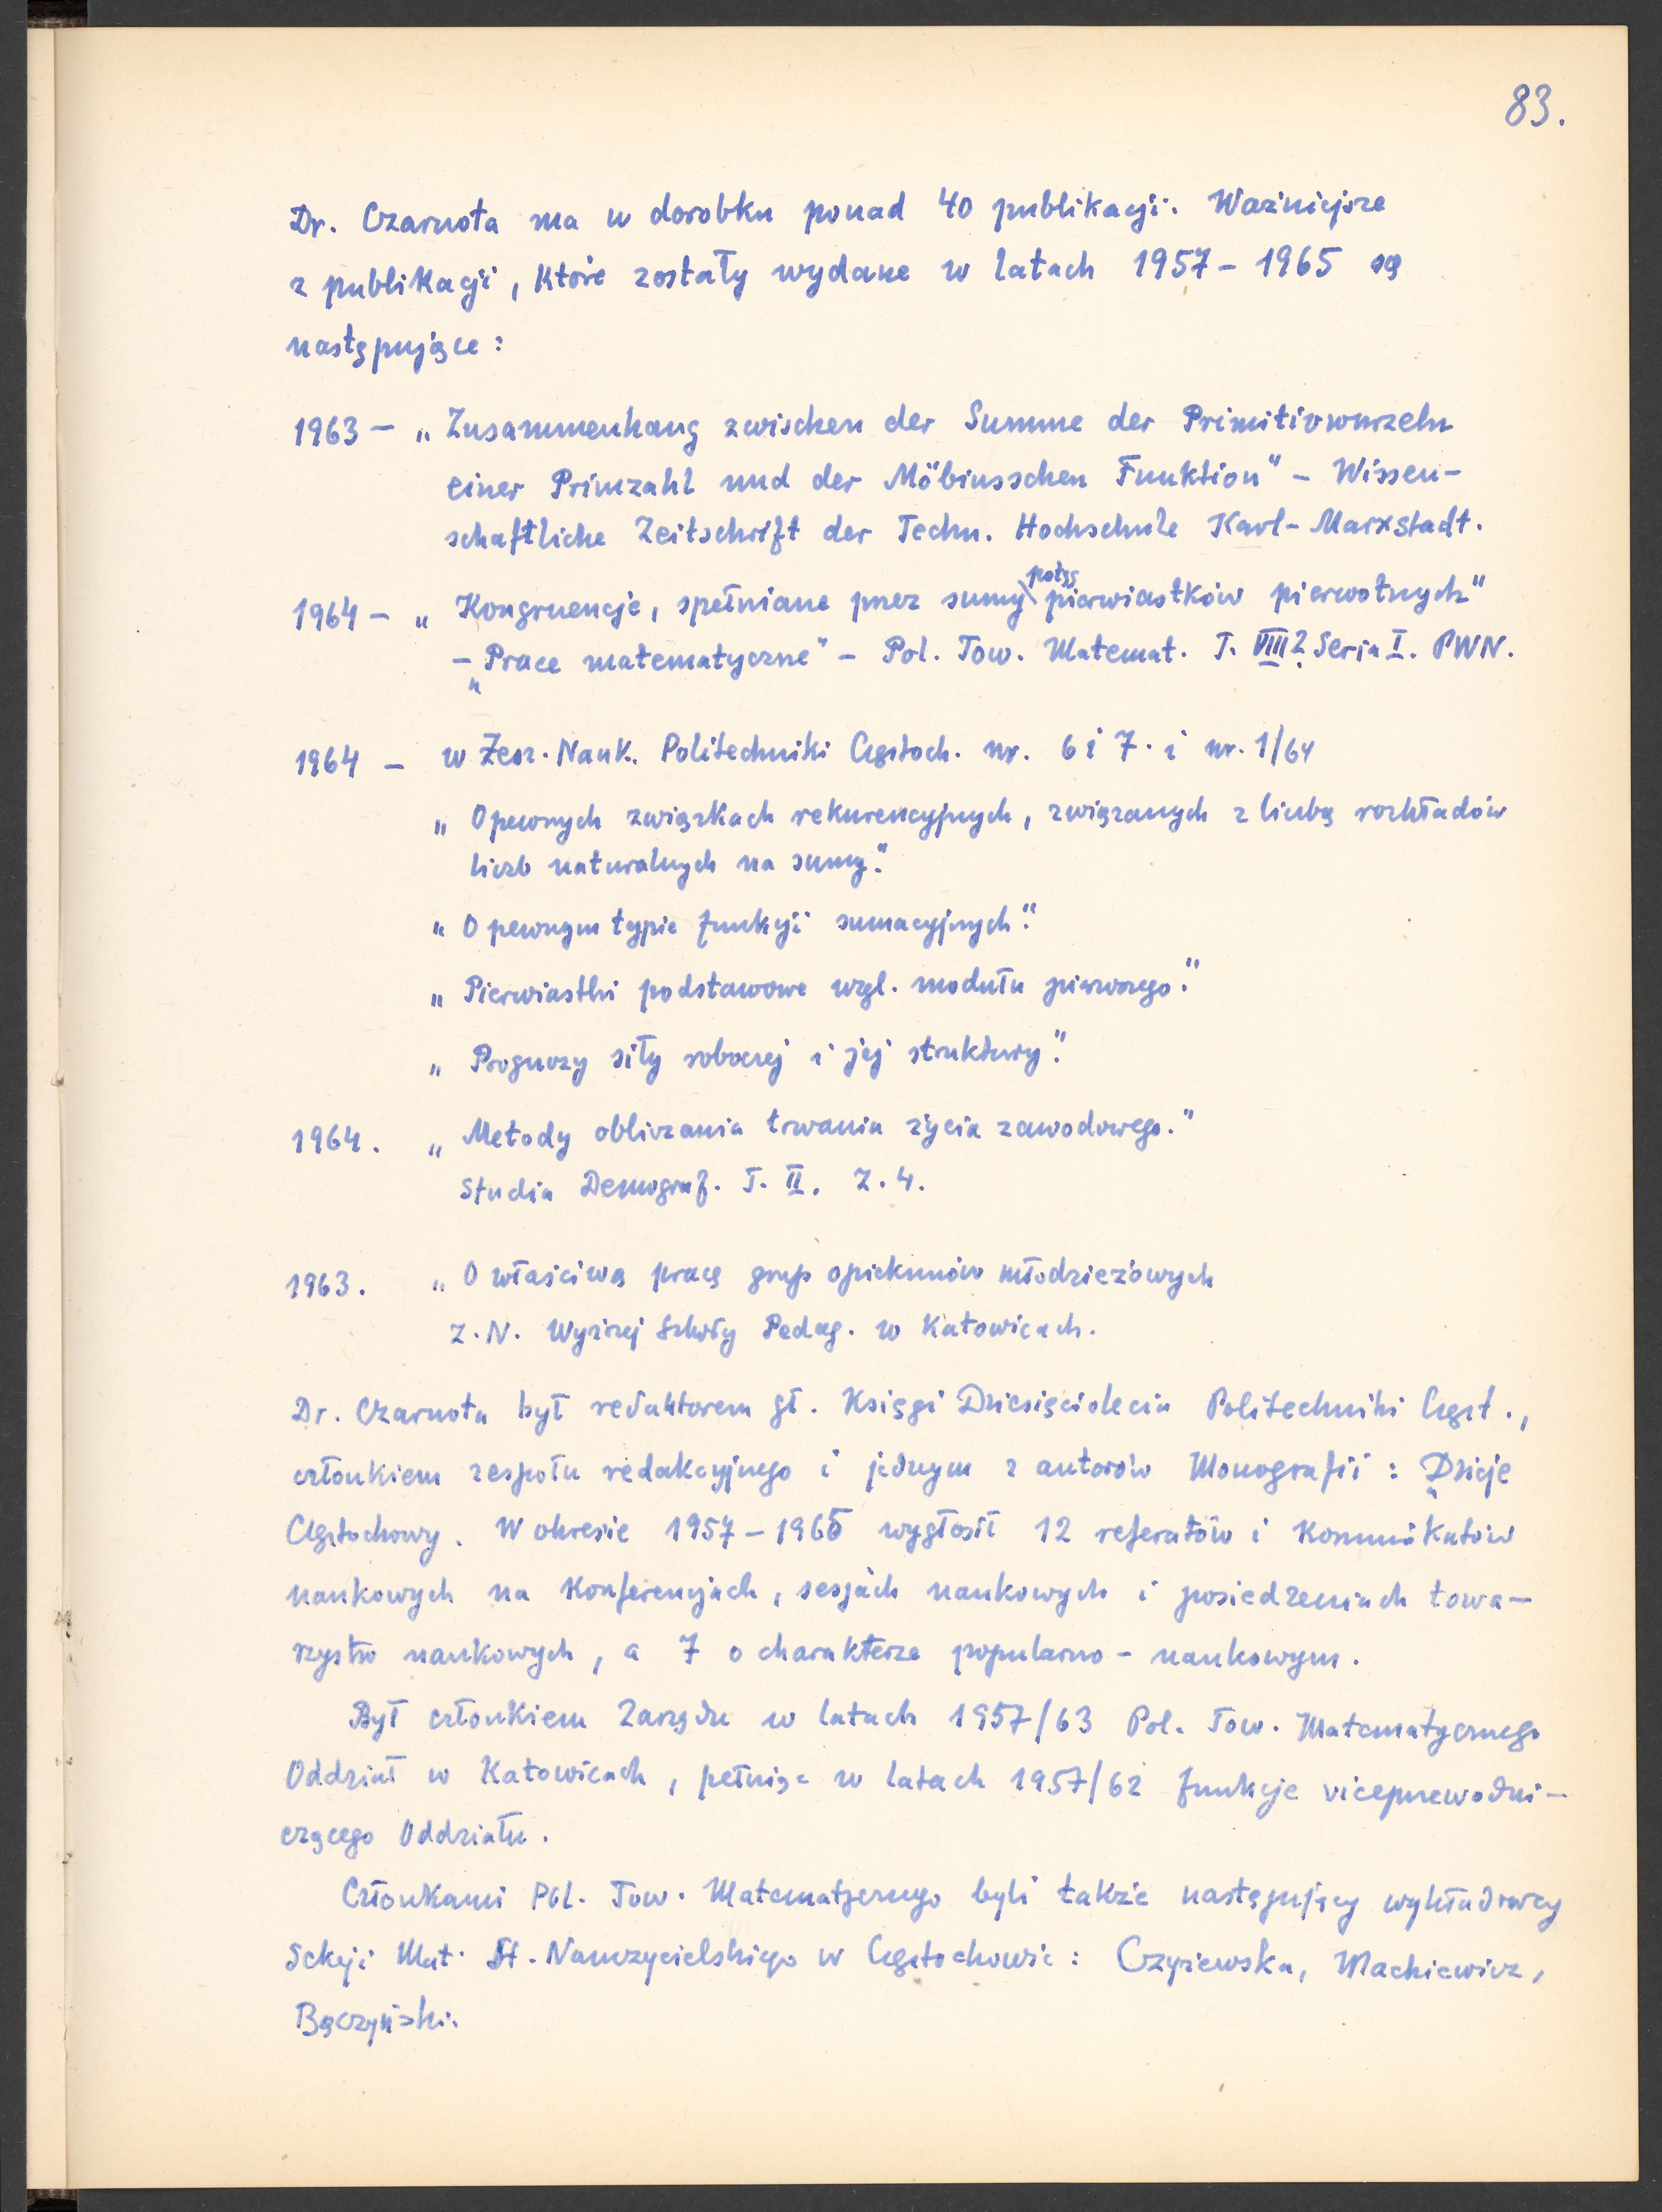 83.
Dr. Czarnota ma w dorobku ponad 40 publikacji. Ważniejsze
z publikacji, które zostały wydane w latach 1957 – 1965 są
następujące:
1963 – „Zusammenhang zwischen der Summe der Primitivwurzeln
einer Primzahl und der Möbiusschen Funktion" – Wissen-
schaftliche Zeitschrift der Techn. Hochschule Karl-Marxstadt.
1964 – „Kongruencje, spełniane przez sumy potęg pierwiastków pierwotnych"
– „Prace matematyczne" – Pol. Tow. Matemat. T. VIII 2. Seria I. PWN.
1964 – w Zesz. Nauk. Politechniki Częstoch. nr. 6 i 7. i nr. 1/64
„O pewnych związkach rekurencyjnych, związanych z liczbą rozkładów
liczb naturalnych na sumy."
„O pewnym typie funkcji sumacyjnych."
„Pierwiastki podstawowe wzgl. modułu pierwszego."
„Prognozy siły roboczej i jej struktury."
1964. „Metody obliczania trwania życia zawodowego."
Studia Demograf. T. II. Z. 4.
1963. „O właściwą pracę grup opiekunów młodzieżowych
Z. N. Wyższej Szkoły Pedag. w Katowicach.
Dr. Czarnota był redaktorem gł. Księgi Dziesięciolecia Politechniki Częst.,
członkiem zespołu redakcyjnego i jednym z autorów Monografii: „Dzieje
Częstochowy. W okresie 1957 – 1965 wygłosił 12 referatów i komunikatów
naukowych na konferencjach, sesjach naukowych i posiedzeniach towa-
rzystw naukowych, a 7 o charakterze popularno-naukowym.
Był członkiem Zarządu w latach 1957/63 Pol. Tow. Matematycznego
Oddział w Katowicach, pełniąc w latach 1957/62 funkcje viceprzewodni-
czącego Oddziału.
Członkami Pol. Tow. Matematycznego byli także następujący wykładowcy
Sekcji Mat. St. Nauczycielskiego w Częstochowie: Czyżewska, Mackiewicz,
Bączyński.